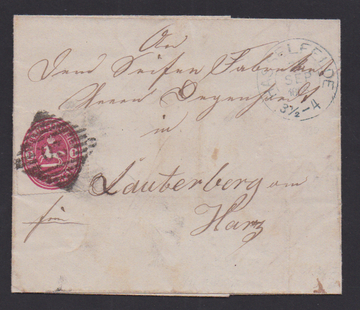 An
Dem Seifen Fabrikant
Herrn Degenhardt
in
Lauterberg am
Harz
SEP
3½-4